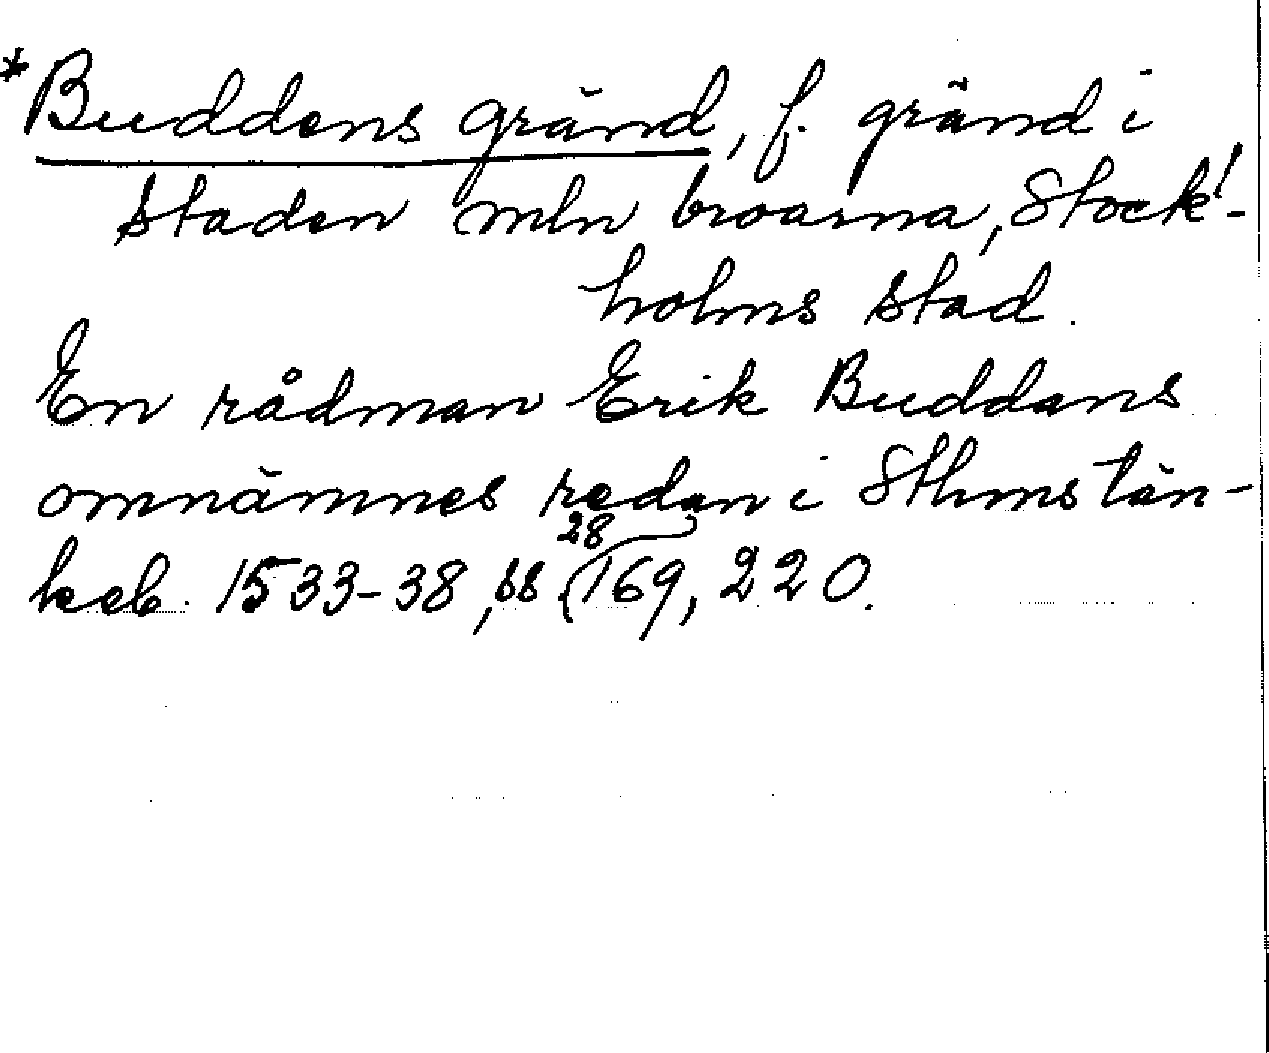 *Buddens gränd, f. gränd i
staden mln broarna, Stock!-
holms stad.
En rådman Erik Buddans
omnämnes redan i Sthms tän-
keb. 1533-38, ss 28, 169, 220.